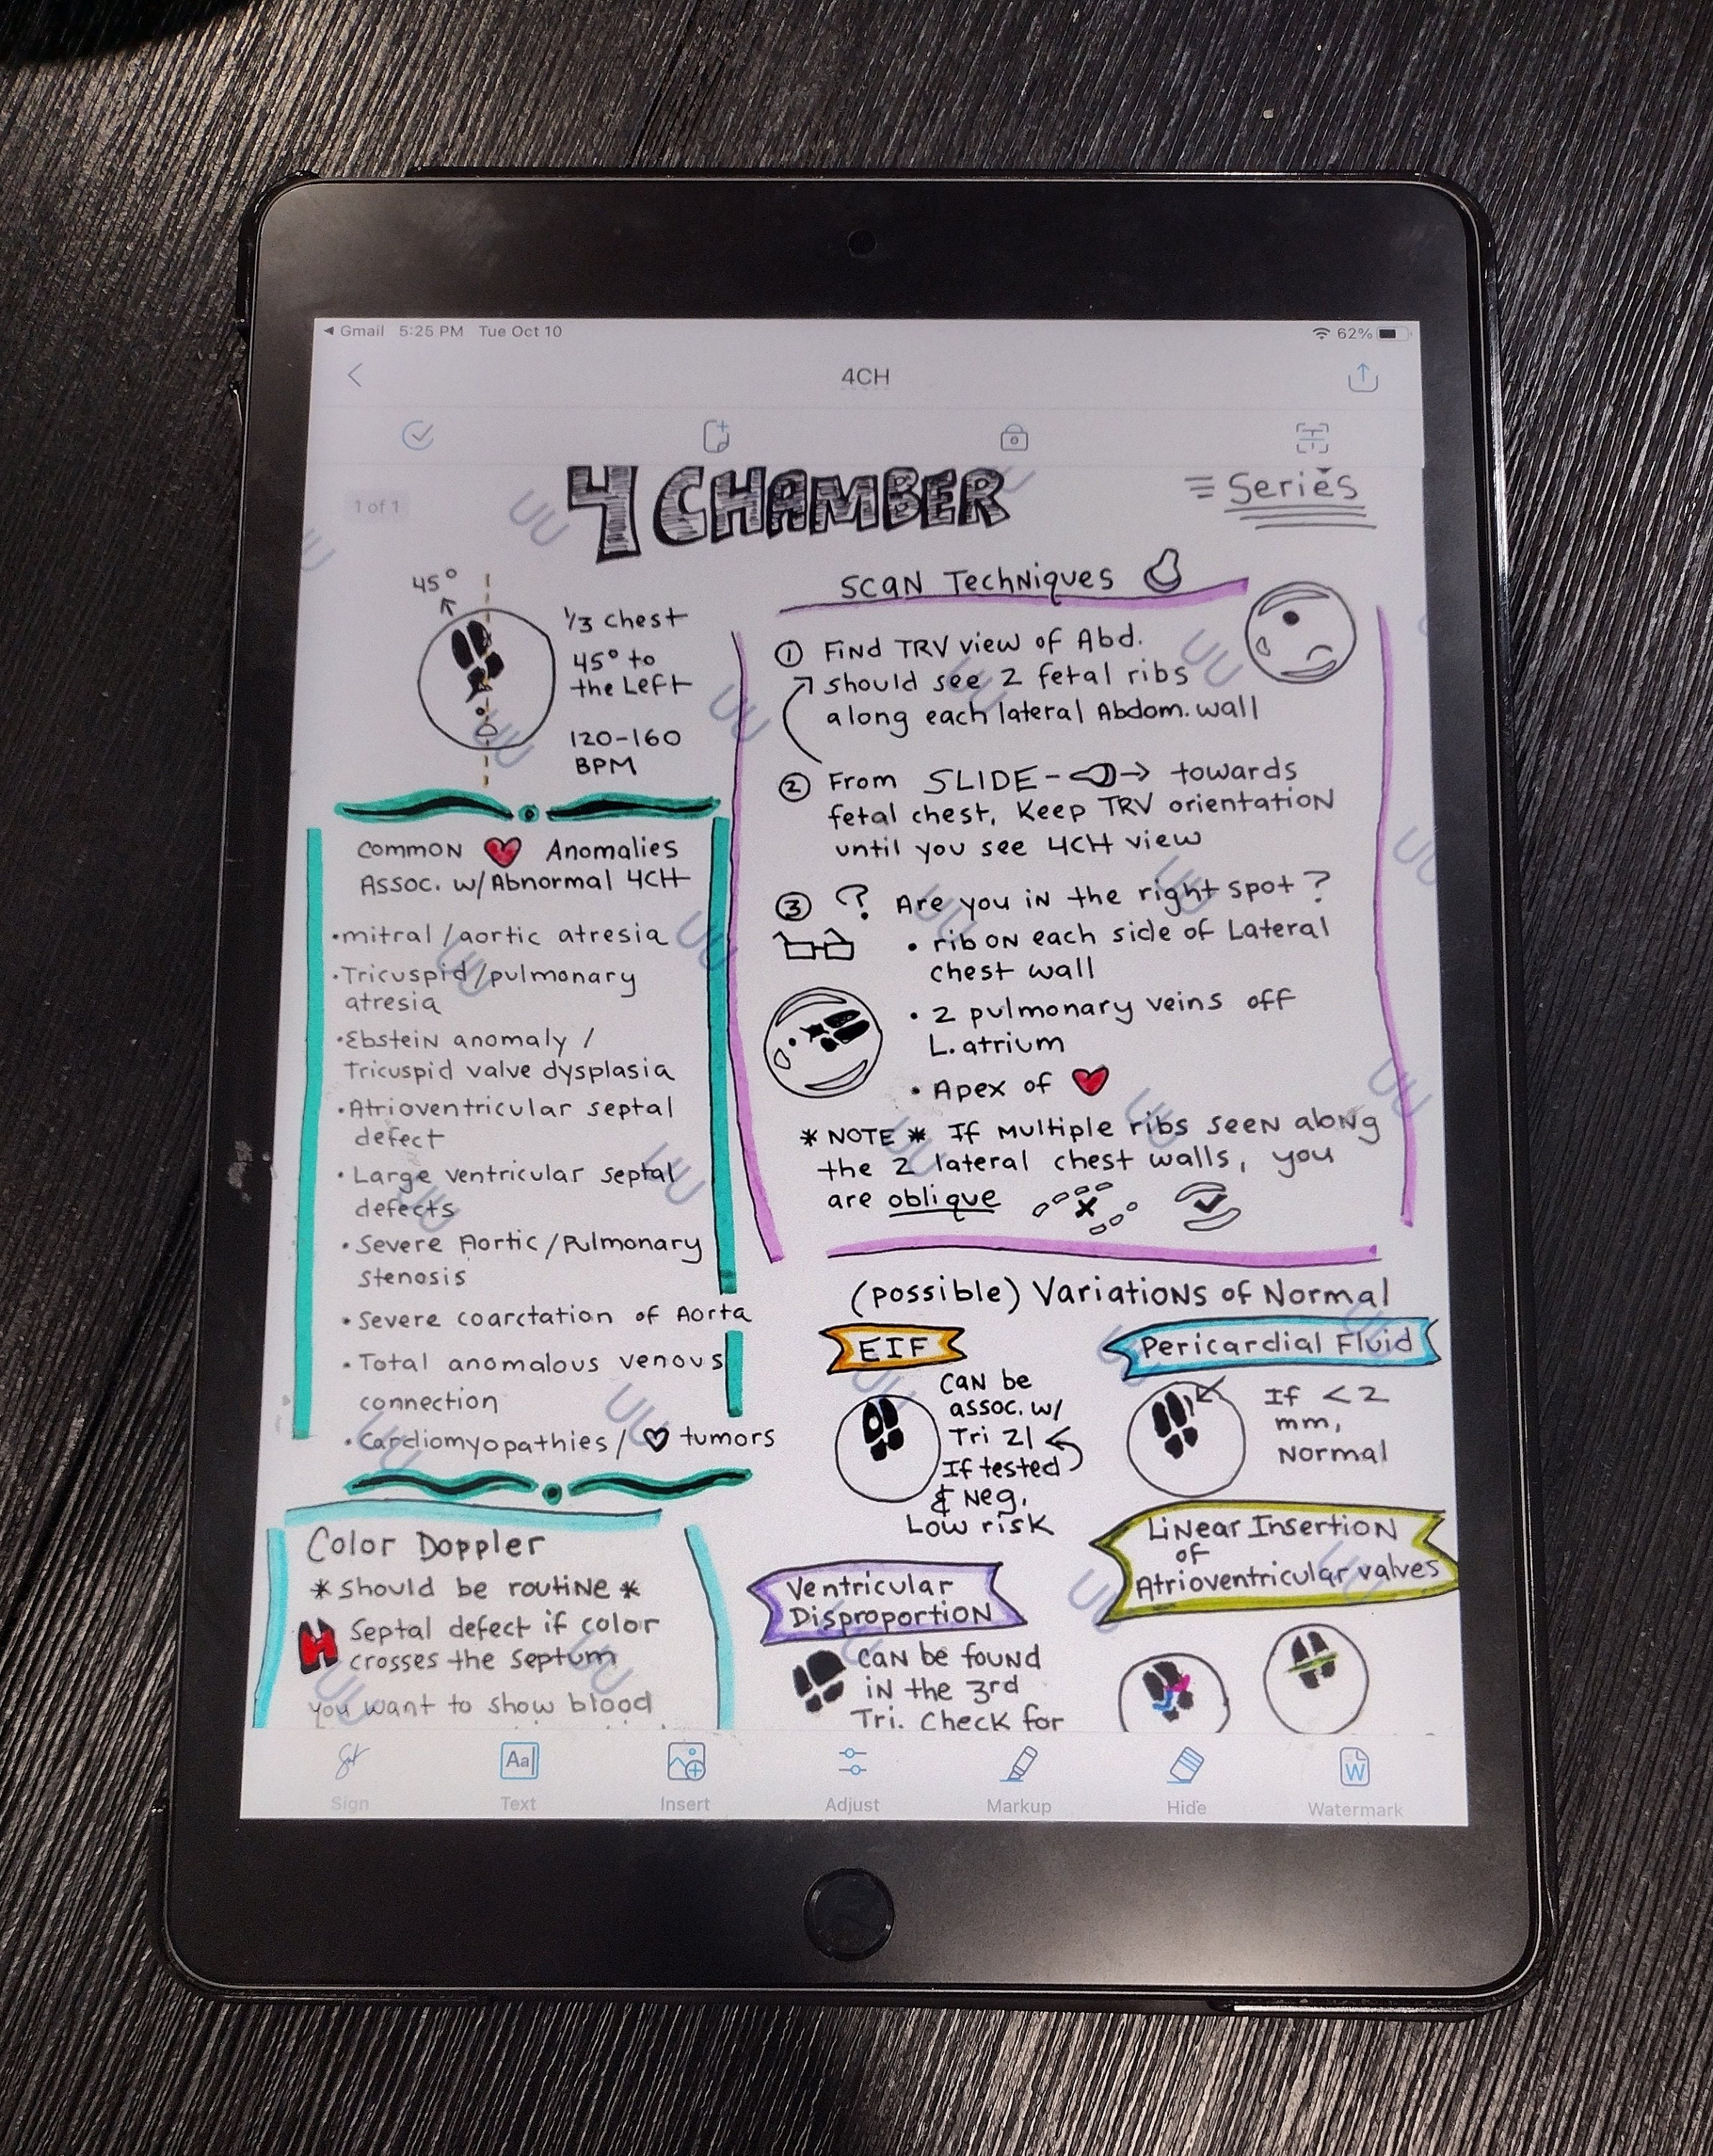 ◄ Gmail 5:25 PM Tue Oct 10
62%
4CH
1 of 1
4 CHAMBER
Series
45°
1/3 chest
45° to
the Left
120-160
BPM
Common ❤ Anomalies
Assoc. w/Abnormal 4CH
• mitral/aortic atresia
• Tricuspid/pulmonary
atresia
• Ebstein anomaly /
Tricuspid valve dysplasia
• Atrioventricular septal
defect
• Large ventricular septal
defects
• Severe Aortic/Pulmonary
stenosis
• Severe coarctation of Aorta
• Total anomalous venous
connection
• Cardiomyopathies/ ♡ tumors
Color Doppler
* should be routine *
Septal defect if color
crosses the septum
you want to show blood
Scan Techniques
① Find TRV view of Abd.
should see 2 fetal ribs
along each lateral Abdom. wall
② From SLIDE → towards
fetal chest, Keep TRV orientation
until you see 4CH view
③ ? Are you in the right spot?
• rib on each side of Lateral
chest wall
• 2 pulmonary veins off
L. atrium
• Apex of ❤
* NOTE * If multiple ribs seen along
the 2 lateral chest walls, you
are oblique
(possible) Variations of Normal
EIF
Can be
assoc. w/
Tri 21
If tested
& Neg.
Low risk
Pericardial Fluid
If < 2
mm,
Normal
Ventricular
Disproportion
can be found
in the 3rd
Tri. Check for
Linear Insertion
of
Atrioventricular valves
Sign
Aa
Text
Insert
Adjust
Markup
Hide
W
Watermark
UU